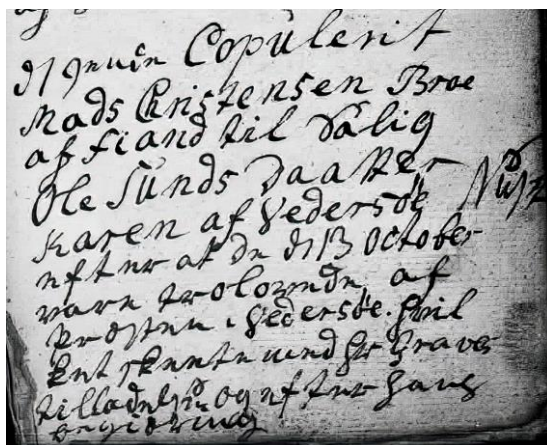 d 9 Copulerit
Mads Christensen Broe
af fiand til Salig
Ole Sunds Daatter
Karen af Vedersøe
efter at de d 13 October
vare trolovede af
Præsten i Vedersøe.
med Hr Graves
tilladelse og efter hans
begiæring